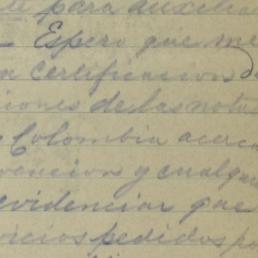 para auxilia
Espero que me
certificacion d
ciones de las nota
Colombia acerc
vencion y cualqu
evidenciar que
vicios pedidos po